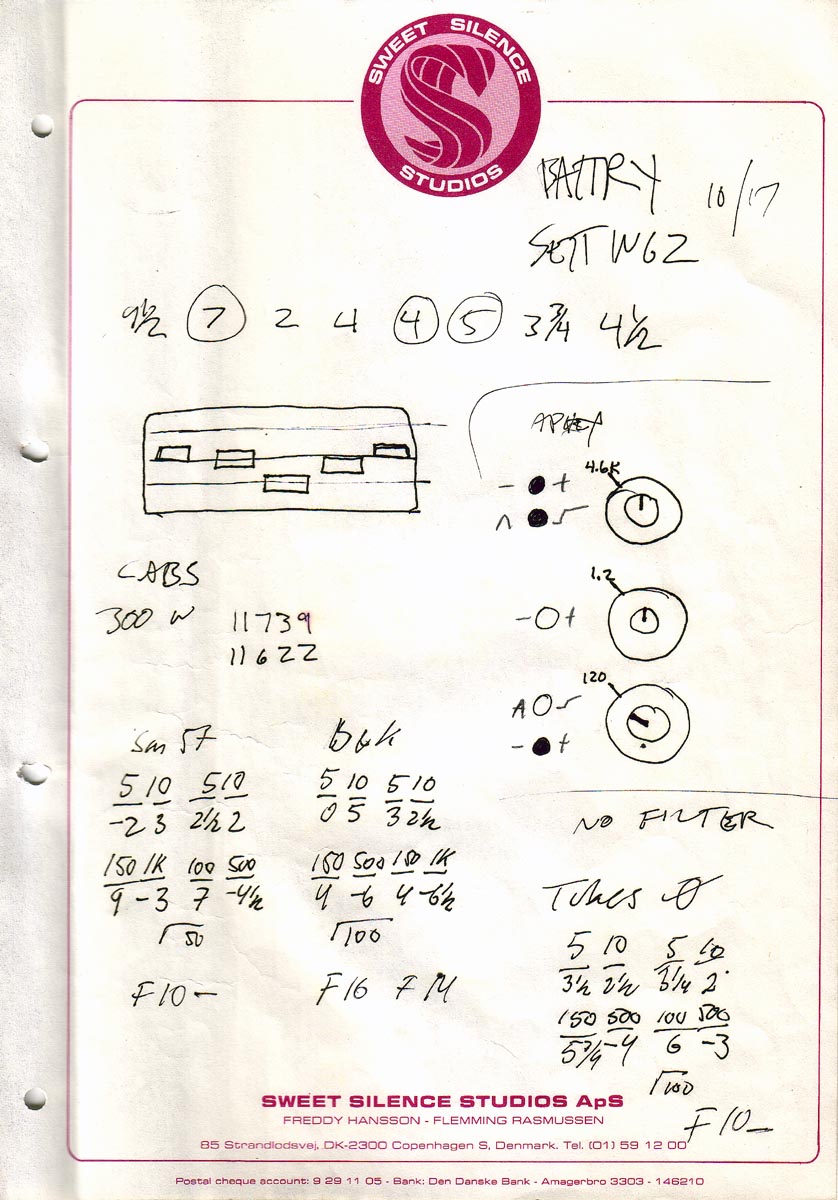 SWEET SILENCE
STUDIOS
BATTRY 10/17
SETTINGZ
9½ 7 2 4 4 5 3¾ 4½
4.6K
- +
1.2
- +
120
- +
CABS
300 W 11739
11622
NO FILTER
SM 57
5 10 5 10
-2 3 2½ 2
150 1K 100 500
9 -3 7 -4½
50
F10-
B&K
5 10 5 10
0 5 3 2½
150 500 150 1K
4 -6 4 -6½
100
F16 FM
Tubes Ø
5 10 5 10
3½ 2½ 3¼ 2
150 500 100 500
5¾ -4 6 -3
100
F10-
SWEET SILENCE STUDIOS ApS
FREDDY HANSSON - FLEMMING RASMUSSEN
85 Strandlodsvej, DK-2300 Copenhagen S, Denmark. Tel. (01) 59 12 00
Postal cheque account: 9 29 11 05 - Bank: Den Danske Bank - Amagerbro 3303 - 146210